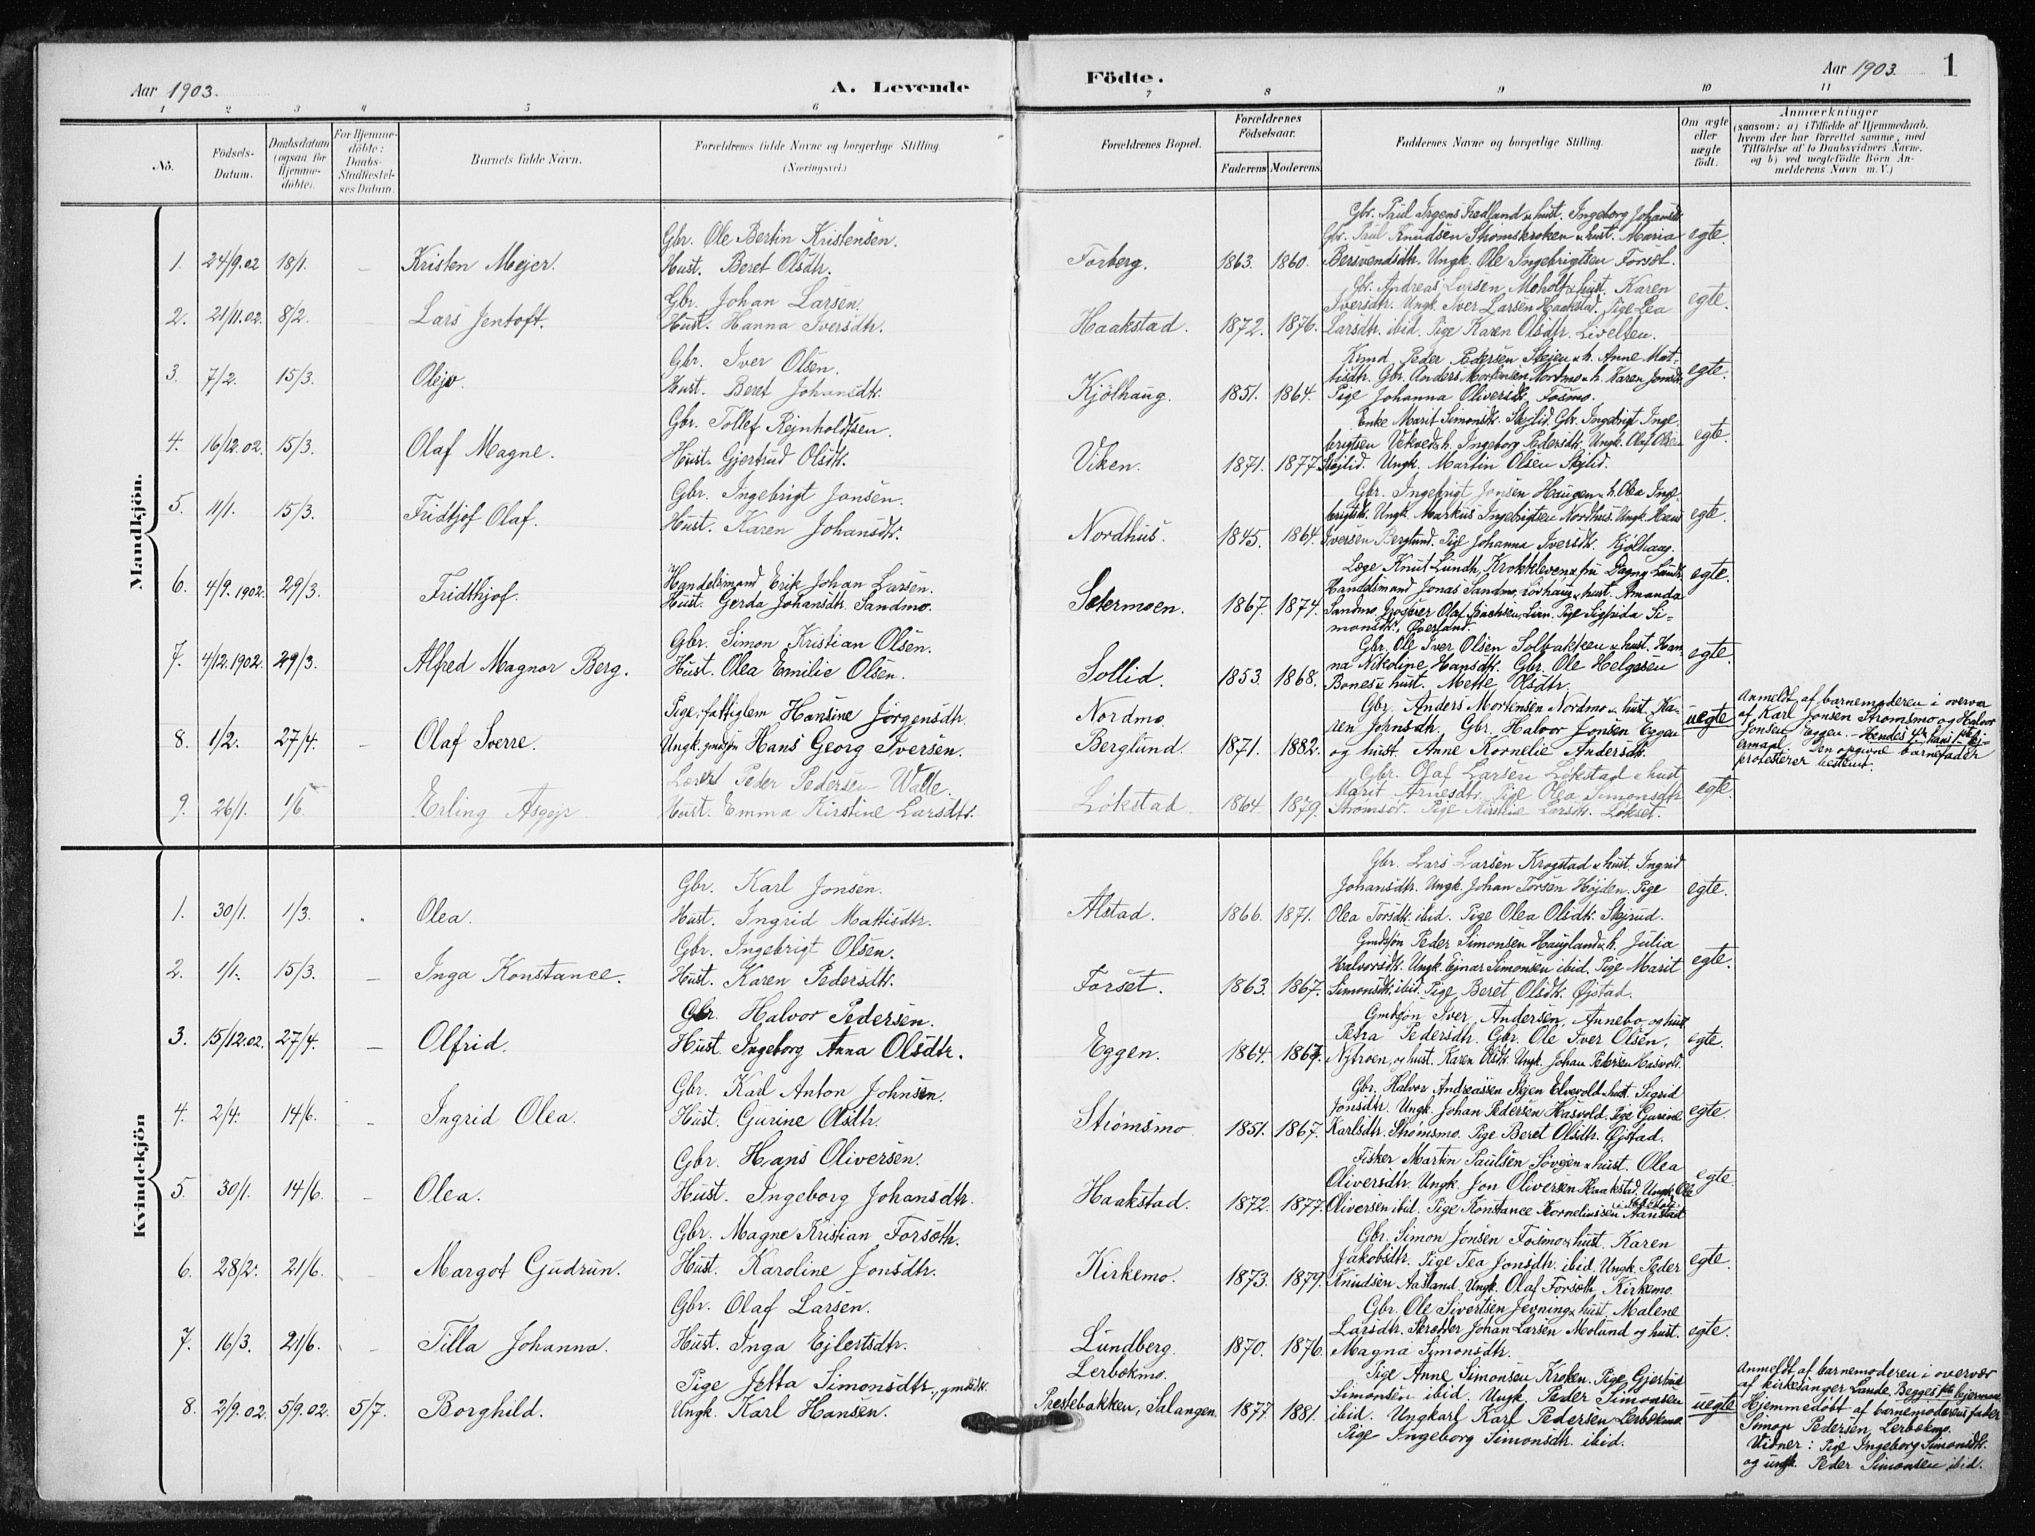 Aar 1903.
A. Levende
Födte.
Aar 1903.
1
1 2 3 4 5 6 7 8 9 10 11
No.
Födsels-Datum.
Daabsdatum (ogsaa for Hjemme-döbte).
For Hjemme-döbte: Daabs-Stadfæstel-ses Datum.
Barnets fulde Navn.
Forældrenes fulde Navne og borgerlige Stilling.
(Næringsvei.)
Forældrenes Bopæl.
Forældrenes Födselsaar.
Faderens Moderens
Faddernes Navne og borgerlige Stilling.
Om ægte eller uægte födt.
Anmærkninger
(saasom: a) i Tilfælde af Hjemmedaab,
hvem der har forrettet samme, med
Tilföielse af to Daabsvidners Navne,
og b) ved uegtefödte Börn An-
melderens Navn m. V.)
Mandkjön.
Gbr. Paul Jrgens Fredland & hust. Ingeborg Johansdtr
Gbr. Ole Bertin Kristensen. Gbr. Paul Knudsen Strømskroken & hust. Maria egte.
1. 24/9.02 18/1. – Kristen Mejer. Hust. Beret Olsdtr. Forberg. 1863. 1860. Bersvendsdtr. Ungk. Ole Ingebrigtsen Forsèt.
Gbr. Johan Larsen. Gbr. Andreas Larsen Moholt & hust. Karen
Iversdtr. Ungk. Iver Larsen Haakstad. Pige Lea egte.
2. 21/11.02. 8/2. Lars Jentoft. Hust. Hanna Iversdtr. Haakstad. 1872. 1876. Larsdtr. ibid. Pige Karen Olsdtr. Livelten.
Gbr. Iver Olsen. Peder Pedersen Skejen & h. Anne Mat-
tisdtr. Gbr. Anders Mortensen Nordmo & h. Karen Jonsdtr. egte.
3. 7/2. 15/3. Hust. Beret Johansdtr. Kjölhaug. 1851. 1864. Pige Johanna Oliversdtr. Fosmo.
Gbr. Tollef Rejnholdtsen. Enke Marit Simonsdtr. Skjlid. Gbr. Ingebrigt Inge-
brigtsen Vekved & h. Ingeborg Pedersdtr. Ungk. Olaf Olsen egte.
4. 16/12.02. 15/3. Olaf Magne. Hust. Gjertrud Olsdtr. Viken. 1871. 1877. Ungk. Martin Olsen Skjlid.
Gbr. Ingebrigt Jonsen. Gbr. Ingebrigt Jonsen Haugen & h. Olea Inge-
brigtsdtr. Ungk. Markus Ingebrigtsen Nordhus. Ungk. Hans egte.
5. 11/1. 15/3. Fridtjof Olaf. Hust. Karen Johansdtr. Nordhus. 1845. 1864. Iversen Berglund. Pige Johanna Iversdtr. Kjölhaug.
Handelsmand Erik Johan Larsen. Læge Knut Lundh, Krokkleven & fru Dagny Lundh. egte.
Handelsmand Jonas Sandmo, & hust. Amanda
6. 4/9.1902. 29/3. Fridthjof. Hust. Gerda Johansdtr. Sandmo. Setermoen. 1867. 1874. Sandmo. Olaf Isachsen, Lien. Pige Sigfrida Si-
monsdtr. Øverland.
Gbr. Simon Kristian Olsen. Gbr. Ole Iver Olsen Solbakken & hust. Han-
na Nikoline Hansdtr. Gbr. Ole Helgesen egte.
7. 4/12.1902. 29/3. Alfred Magnar Berg. Hust. Olea Emilie Olsen. Sollid. 1853. 1868. Bones & hust. Mette Olsdtr.
Pige, fattiglem Hansine Jörgensdtr. Nordmo Gbr. Anders Mortensen Nordmo & hust. Ka-
ren Johnsdtr. Gbr. Halvor Jonsen Eggen uegte
8. 1/2. 27/4. – Olaf Sverre. Ungk. gmdsøn Hans Georg Iversen. Berglund. 1871. 1882. og hust. Anne Kornelie Andersdtr.
Anmeldt af barnemoderen i overvær
af Karl Jonsen Strømsmo og Halvor
Jonsen Eggen. Hendes 4de, hans 1ste lej-
ermaal. Den opgivne barnefader
protesterer bestemt.
Lærer Peder Pedersen Walle. Gbr. Olaf Larsen Løkstad & hust.
Marit Arnesdtr. Pige Olea Simonsdtr egte.
9. 26/1. 1/6. Erling Asgejr Hust. Emma Kirstine Larsdtr. Løkstad. 1864 1879. Strømsør. Pige Kirstine Larsdtr. Løkset.
Kvindekjön
Gbr. Karl Jonsen. Gbr. Lars Larsen Krogstad & hust. Ingrid
Johansdtr. Ungk. Johan Torsen Højden. Pige egte.
1. 30/1. 1/3. Olea. Hust. Ingrid Mattisdtr. Alstad. 1866. 1871. Olea Torsdtr. ibid. Pige Olea Olsdtr. Skjrud.
Gbr. Ingebrigt Olsen. Gmdsøn Peder Simonsen Haugland & h. Julia
Halvorsdtr. Ungk. Ejnar Simonsen ibid. Pige Marit egte.
2. 1/1. 15/3. – Inga Konstance. Hust. Karen Pedersdtr. Forset. 1863. 1867. Simonsdtr. ibid. Pige Beret Olsdtr. Øjstad.
Gbr Halvor Pedersen. Gmdsøn Iver Andersen, Annebo, og hust.
Petra Pedersdtr. Gbr. Ole Iver Olsen, egte.
3. 15/12.02. 27/4. – Olfrid. Hust. Ingeborg Anna Olsdtr. Eggen. 1864. 1867. Nytroen, og hust. Karen Olsdtr. Ungk. Johan Petersen Hasvold.
Gbr. Karl Anton Johnsen. Gbr. Halvor Andreassen Skjen Elvevold & hust. Sigrid
Jonsdtr. Ungk. Johan Pedersen Hasvold. Pige Gurine egte.
4. 2/4. 14/6. Ingrid Olea. Hust. Gurine Olsdtr. Strömsmo 1851. 1867. Karlsdtr. Strømsmo. Pige Beret Olsdtr. Øjstad.
Gbr. Hans Oliversen. Fisker Martin Paulsen Søvejen & hust. Olea
Oliversdtr. Ungk. Jon Oliversen Haakstad. Ungk. Ole egte.
5. 30/1. 14/6. – Olea. Hust. Ingeborg Johansdtr. Haakstad. 1872. 1877. Oliversen ibid. Pige Konstance Kornelinssen Aanstad
Gbr. Magne Kristian Forsøth. Gbr. Simon Jonsen Fosmo & hust. Karen
Jakobsdtr. Pige Tea Jonsdtr. ibid. Ungk. Peder egte.
6. 28/2. 21/6. Margot Gudrun. Hust. Karoline Jonsdtr. Kirkemo. 1873. 1879. Knudsen Aasland. Ungk. Olaf Forsøth, Kirkemo.
Gbr. Olaf Larsen. Gbr. Ole Sivertsen Jevning & hust. Malene
Larsdtr. Skredder Johan Larsen Molund og hust. egte.
7. 16/3. 21/6. Tilla Johanna. Hust. Inga Ejlertsdtr. Lundberg. 1870. 1876. Magna Simonsdtr.
Pige Jetta Simonsdtr., gmdsdtr. Lerbekmo. Pige Anne Simonsen Kroken. Pige Gjertrud
Simonsen ibid. Ungk. Peder Simonsen
8. 2/9.02. 5/9.02. 5/7. Borghild. Ungk. Karl Hansen. Prestebakken, Salangen. 1877 1881. ibid. Ungkarl Karl Pedersen Lerbekmo. uegte
Pige Ingeborg Simonsdtr. ibid.
Anmeldt af barnemoderen i overvær
af kirkesanger Lande. Begges 1ste lejermaal.
Hjemmedøbt af barnemoderens fader
Simon Pedersen, Lerbekmo.
Vidner: Pige Ingeborg Simonsdtr.
og ungk. Peder Simonsen ibid.